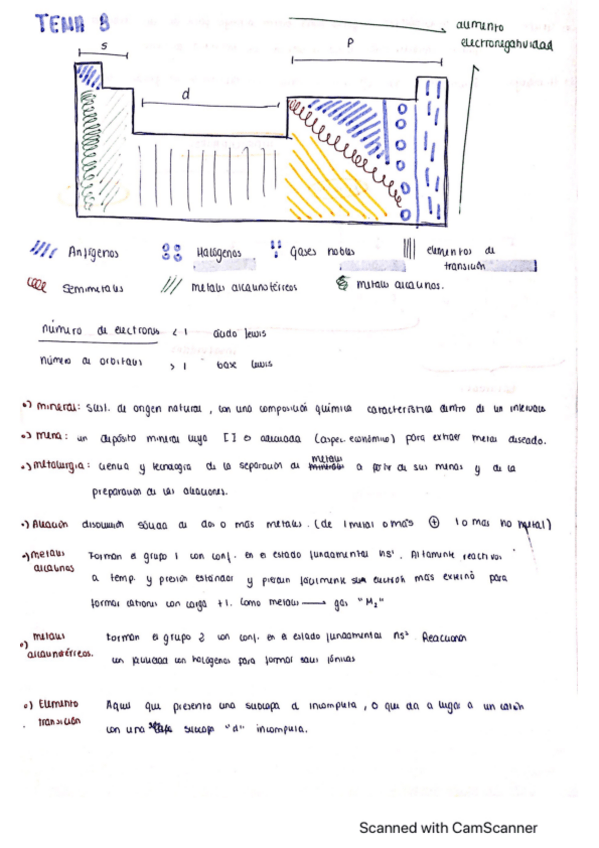 TEMA 8
aumento
electronegatividad
s
p
d
Anfígenos
Halógenos
Gases nobles
elementos de
transición
Semimetales
metales alcalinotérreos
metales alcalinos.
número de electrones < 1 ácido lewis
número de orbitales > 1 base lewis
•) mineral: sust. de origen natural, con una composición química característica dentro de un intervalo
•) mena: un depósito mineral cuya [ ] es adecuada (aspec. económico) para extraer metal deseado.
•) metalurgia: ciencia y tecnología de la separación de metales a partir de sus menas y de la
preparación de las aleaciones.
•) Aleación disolución sólida de dos o más metales. (de 1 metal o más ⊕ 1 o mas no metal)
•) metales
alcalinos
Forman el grupo 1 con conf. en el estado fundamental ns¹. Altamente reactivos
a temp. y presión estándar y pierden fácilmente su electrón más externo para
formar cationes con carga +1. Como metales ⟶ gas "M₂"
•) metales
alcalinotérreos.
Forman el grupo 2 con conf. en el estado fundamental ns² Reaccionan
con halógenos para formar sales iónicas
•) Elemento
transición
Aquel que presenta una subcapa d incompleta, o que da a lugar a un catión
con una subcapa "d" incompleta.
Scanned with CamScanner